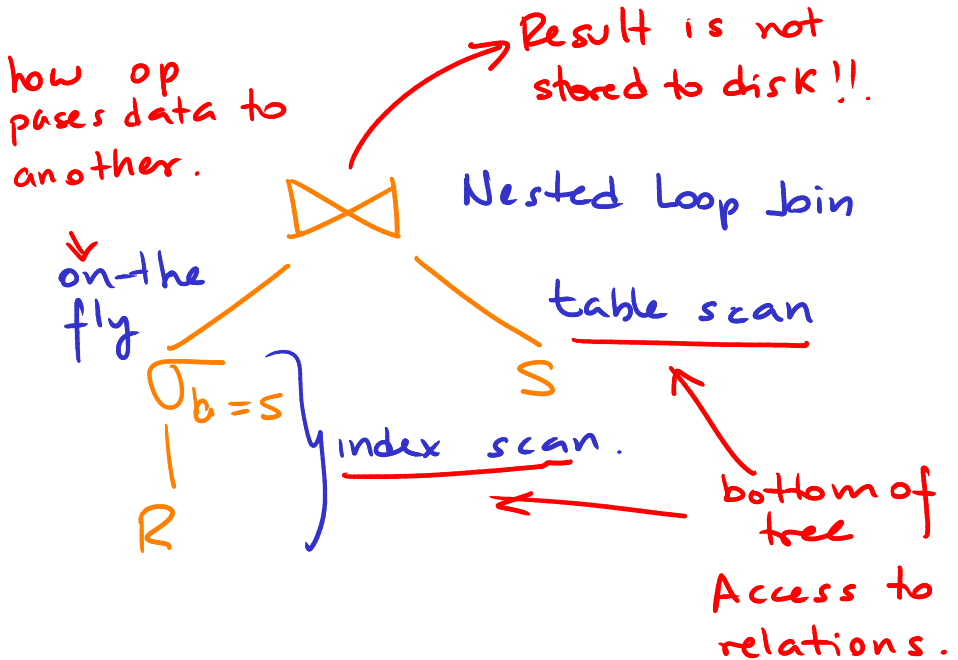 how op
pases data to
another.
Result is not
stored to disk!!
⋈
Nested Loop Join
on-the
fly
table scan
σ b = 5
S
index scan.
R
bottom of
tree
Access to
relations.